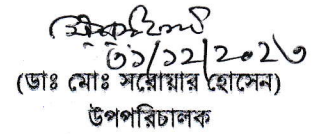 ৩১/১২/২০২৩
(ডাঃ মোঃ সরোয়ার হোসেন)
উপপরিচালক